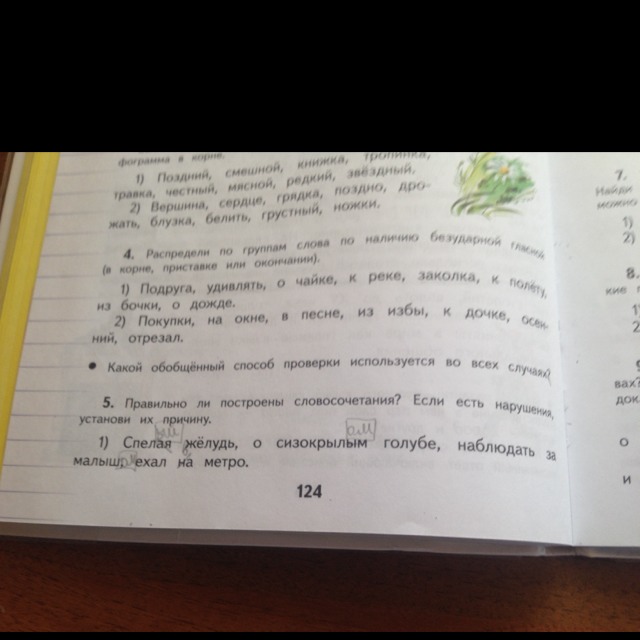 фограмма в корне.
1) Поздний, смешной, книжка, тропинка,
травка, честный, мясной, редкий, звёздный,
2) Вершина, сердце, грядка, поздно, дро-
жать, блузка, белить, грустный, ножки.
4. Распредели по группам слова по наличию безударной гласной
(в корне, приставке или окончании).
1) Подруга, удивлять, о чайке, к реке, заколка, к полёту,
из бочки, о дожде.
2) Покупки, на окне, в песне, из избы, к дочке, осен-
ний, отрезал.
• Какой обобщённый способ проверки используется во всех случаях?
5. Правильно ли построены словосочетания? Если есть нарушения,
установи их причину.
ый
ом
1) Спелая жёлудь, о сизокрылым голубе, наблюдать за
малыш ехал на метро.
124
7.
Найди
можно
1)
2)
8.
кие
1
2
вах?
док
о
и